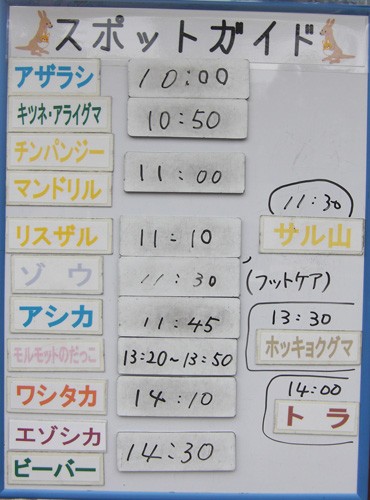 スポットガイド
アザラシ 10:00
キツネ・アライグマ 10:50
チンパンジー
マンドリル 11:00
11:30
サル山
リスザル 11:10
ゾウ 11:30 (フットケア)
アシカ 11:45
13:30
ホッキョクグマ
モルモットのだっこ 13:20~13:50
ワシタカ 14:10
14:00
トラ
エゾシカ
ビーバー 14:30